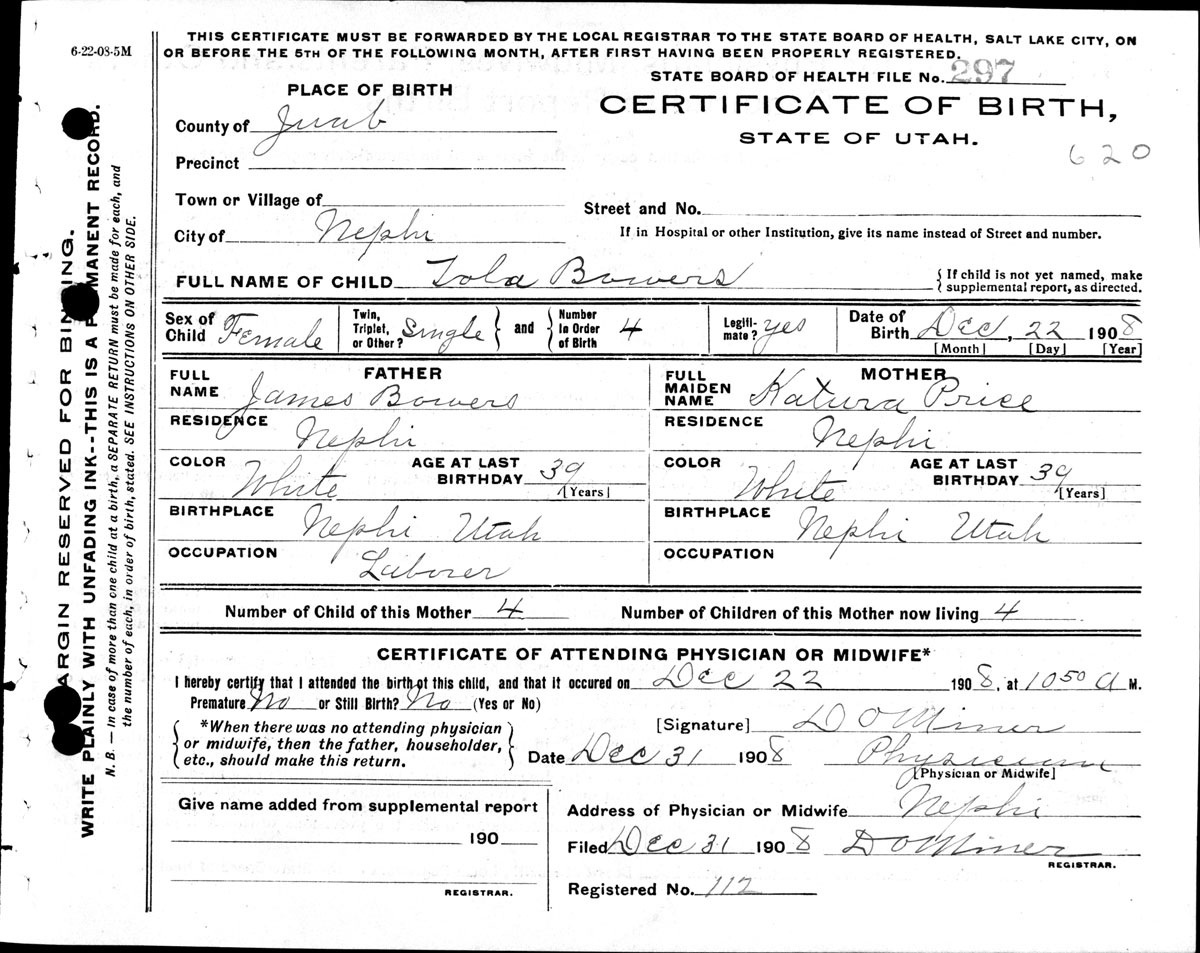 6-22-08-5M
THIS CERTIFICATE MUST BE FORWARDED BY THE LOCAL REGISTRAR TO THE STATE BOARD OF HEALTH, SALT LAKE CITY, ON
OR BEFORE THE 5TH OF THE FOLLOWING MONTH, AFTER FIRST HAVING BEEN PROPERLY REGISTERED.
STATE BOARD OF HEALTH FILE No. 297
PLACE OF BIRTH
CERTIFICATE OF BIRTH,
STATE OF UTAH.
620
County of Juab
Precinct
Town or Village of
Street and No.
City of Nephi
If in Hospital or other Institution, give its name instead of Street and number.
FULL NAME OF CHILD Iola Bowers
{ If child is not yet named, make
supplemental report, as directed.
Sex of Child Female
Twin, Triplet, or Other? Single } and { Number In Order of Birth 4
Legitimate? yes
Date of Birth Dec, 22 1908
[Month] [Day] [Year]
FATHER
FULL NAME James Bowers
RESIDENCE Nephi
COLOR White AGE AT LAST BIRTHDAY 39 [Years]
BIRTHPLACE Nephi Utah
OCCUPATION Laborer
MOTHER
FULL MAIDEN NAME Katura Price
RESIDENCE Nephi
COLOR White AGE AT LAST BIRTHDAY 39 [Years]
BIRTHPLACE Nephi Utah
OCCUPATION
Number of Child of this Mother 4 Number of Children of this Mother now living 4
CERTIFICATE OF ATTENDING PHYSICIAN OR MIDWIFE*
I hereby certify that I attended the birth of this child, and that it occured on Dec 22 1908, at 10 50 A M.
Premature No or Still Birth? No (Yes or No)
{ *When there was no attending physician
or midwife, then the father, householder,
etc., should make this return. }
[Signature] D O Miner
Date Dec 31 1908 Physician
[Physician or Midwife]
Give name added from supplemental report
190
REGISTRAR.
Address of Physician or Midwife Nephi
Filed Dec 31 1908 D O Miner
REGISTRAR.
Registered No. 112
ARGIN RESERVED FOR BIN ING.
WRITE PLAINLY WITH UNFADING INK--THIS IS A P MANENT RECORD.
N. B. — In case of more than one child at a birth, a SEPARATE RETURN must be made for each, and
the number of each, in order of birth, stated. SEE INSTRUCTIONS ON OTHER SIDE.